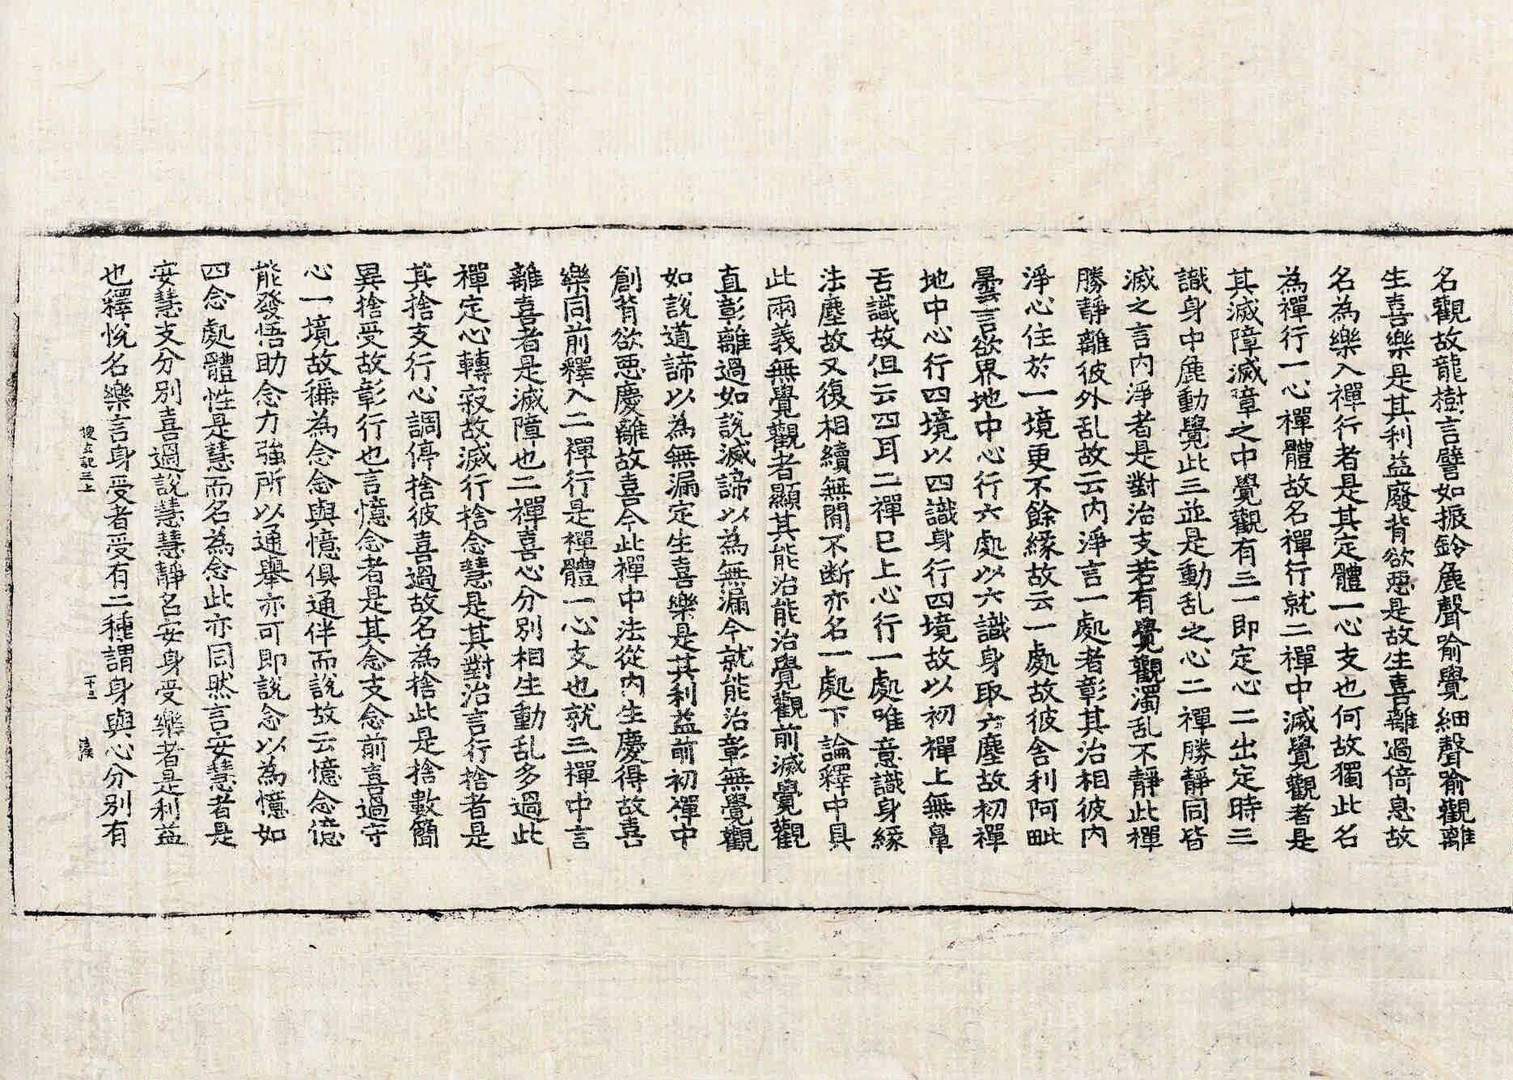 名觀故龍樹言譬如振鈴麁聲喻覺細聲喻觀離
生喜樂是其利益廢背欲惡是故生喜離過倚息故
名為樂入禪行者是其定體一心支也何故獨此名
為禪行一心禪體故名禪行就二禪中滅覺觀者是
其滅障滅障之中覺觀有三一即定心二出定時三
識身中麁動覺此三並是動乱之心二禪勝靜同皆
滅之言內淨者是對治支若有覺觀濁乱不靜此禪
勝靜離彼外乱故云內淨言一處者彰其治相彼內
淨心住於一境更不餘緣故云一處故彼舍利阿毗
曇言欲界地中心行六處以六識身取六塵故初禪
地中心行四境以四識身行四境故以初禪上無鼻
舌識故但云四耳二禪已上心行一處唯意識身緣
法塵故又復相續無間不断亦名一處下論釋中具
此兩義無覺觀者顯其能治能治覺觀前滅覺觀
直彰離過如說滅諦以為無漏今就能治彰無覺觀
如說道諦以為無漏定生喜樂是其利益前初禪中
創背欲惡慶離故喜今此禪中法從內生慶得故喜
樂同前釋入二禪行是禪體一心支也就三禪中言
離喜者是滅障也二禪喜心分別相生動乱多過此
禪定心轉寂故滅行捨念慧是其對治言行捨者是
其捨支行心調停捨彼喜過故名為捨此是捨數簡
異捨受故彰行也言憶念者是其念支念前喜過守
心一境故稱為念念與憶俱通伴而說故云憶念憶
能發悟助念力強所以通舉亦可即說念以為憶如
四念處體性是慧而名為念此亦同然言安慧者是
安慧支分別喜過說慧慧靜名安身受樂者是利益
也釋悅名樂言身受者受有二種謂身與心分別有
搜玄記三上